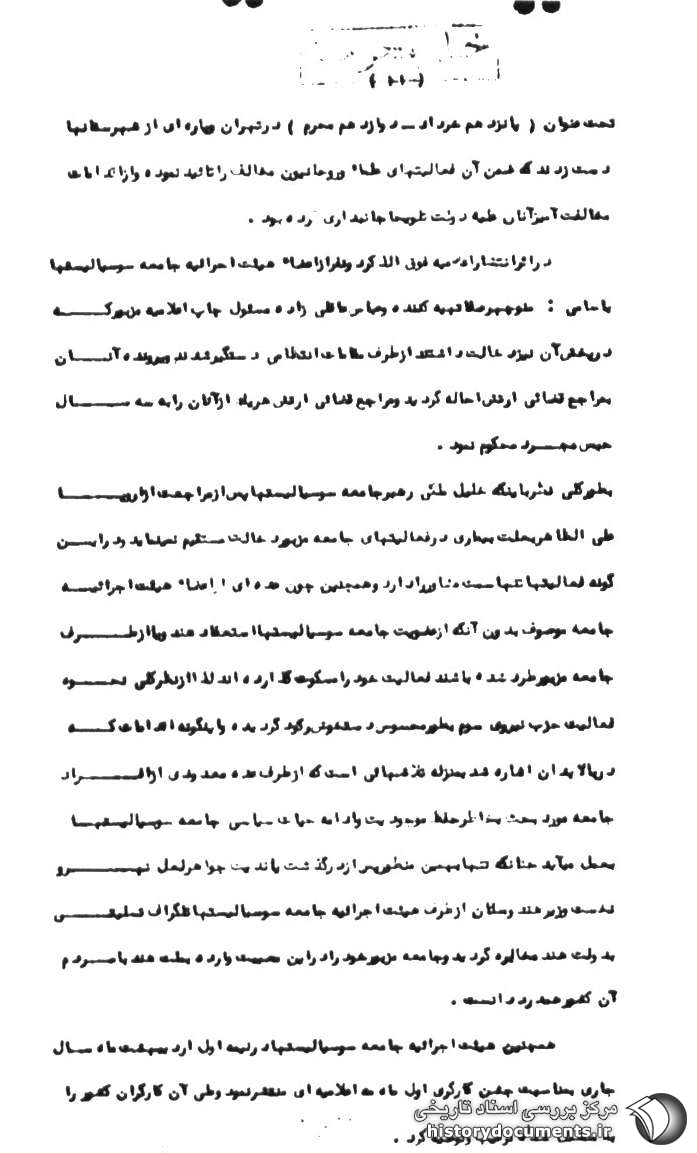 تحت عنوان ( پانزدهم خرداد ــ دوازدهم محرم ) در تهران و پاره ای از شهرستانها
دست زدند که ضمن آن فعالیتهای علماء و روحانیون مخالف را تائید نموده و از اقدامات
مخالفت آمیز آنان علیه دولت تلویحا جانبداری کرده بود .
در اثر انتشار اعلامیه فوق الذکر دو نفر از اعضاء هیئت اجرائیه جامعه سوسیالیستها
باسامی : منوچهر صفا تهیه کننده و عباس عاقلی زاده مسئول چاپ اعلامیه مزبور که
در پخش آن نیز دخالت داشتند از طرف مقامات انتظامی دستگیر شدند و پرونده آنان
بمراجع قضائی ارتش احاله گردید و مراجع قضائی ارتش هر یک از آنان را به سه سال
حبس مجرد محکوم نمود .
بطور کلی نظر باینکه خلیل ملکی رهبر جامعه سوسیالیستها پس از مراجعت از اروپا
علی الظاهر بعلت بیماری در فعالیتهای جامعه مزبور دخالت مستقیم نمینماید و در این
گونه فعالیتها تنها سمت مشاور را دارد و همچنین چون عده ای از اعضاء هیئت اجرائیه
جامعه موصوف بدون آنکه از عضویت جامعه سوسیالیستها استعفا دهند و یا از طرف
جامعه مزبور طرد شده باشند فعالیت خود را مسکوت گذارده اند لذا از نظر کلی نحوه
فعالیت حزب نیروی سوم بطور محسوس دستخوش رکود گردیده و اینگونه اقدامات که
در بالا بدان اشاره شد بمنزله تلاشهائی است که از طرف عده معدودی از افراد
جامعه مورد بحث بخاطر حفظ موجودیت و ادامه حیات سیاسی جامعه سوسیالیستها
بعمل میآید چنانکه تنها بهمین منظور پس از درگذشت پاندیت جواهر لعل نهرو
نخست وزیر هندوستان از طرف هیئت اجرائیه جامعه سوسیالیستها تلگراف تسلیتی
بدولت هند مخابره گردید و جامعه مزبور خود را در این مصیبت وارده بملت هند با مردم
آن کشور همدرد دانست .
همچنین هیئت اجرائیه جامعه سوسیالیستها در نیمه اول اردیبهشت ماه سال
جاری بمناسبت جشن کارگری اول ماه مه اعلامیه ای منتشر نمود و طی آن کارگران کشور را
کرد .
مرکز بررسی اسناد تاریخی
historydocuments.ir